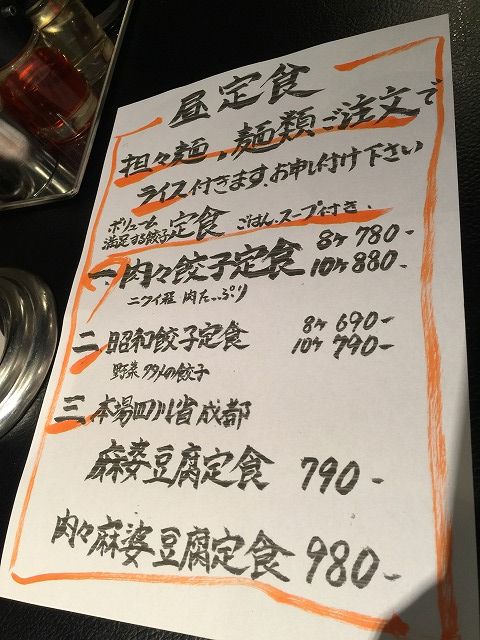 昼定食
担々麺、麺類ご注文で
ライス付きます、お申し付け下さい
ボリューム
満足する餃子定食 ごはん、スープ付き、
一、肉々餃子定食 8ヶ780-
10ヶ880-
肉たっぷり
二、昭和餃子定食 8ヶ690-
10ヶ790-
野菜 の餃子
三、本場四川省成都
麻婆豆腐定食 790-
肉々麻婆豆腐定食 980-